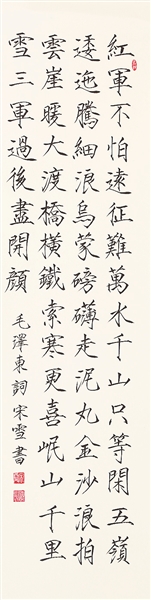 紅軍不怕遠征難萬水千山只等閑五嶺
逶迤騰細浪烏蒙磅礴走泥丸金沙浪拍
雲崖暖大渡橋橫鐵索寒更喜岷山千里
雪三軍過後盡開顏
毛澤東詞宋雪書